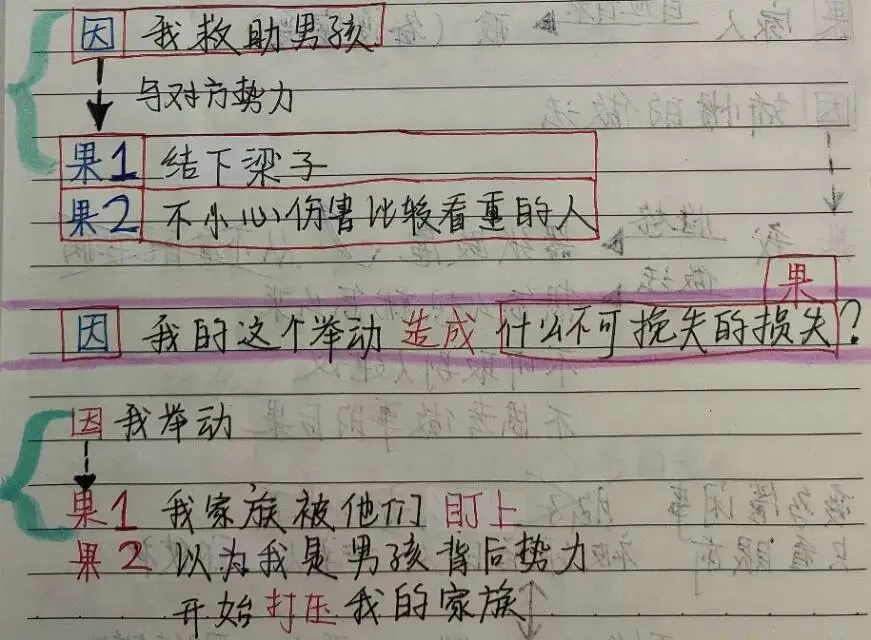 因 我救助男孩
与对方势力
果1 结下梁子
果2 不小心伤害比较看重的人
果
因 我的这个举动 造成 什么不可挽失的损失?
因 我举动
果1 我家族被他们 盯上
果2 以为我是男孩背后势力
开始打压我的家族